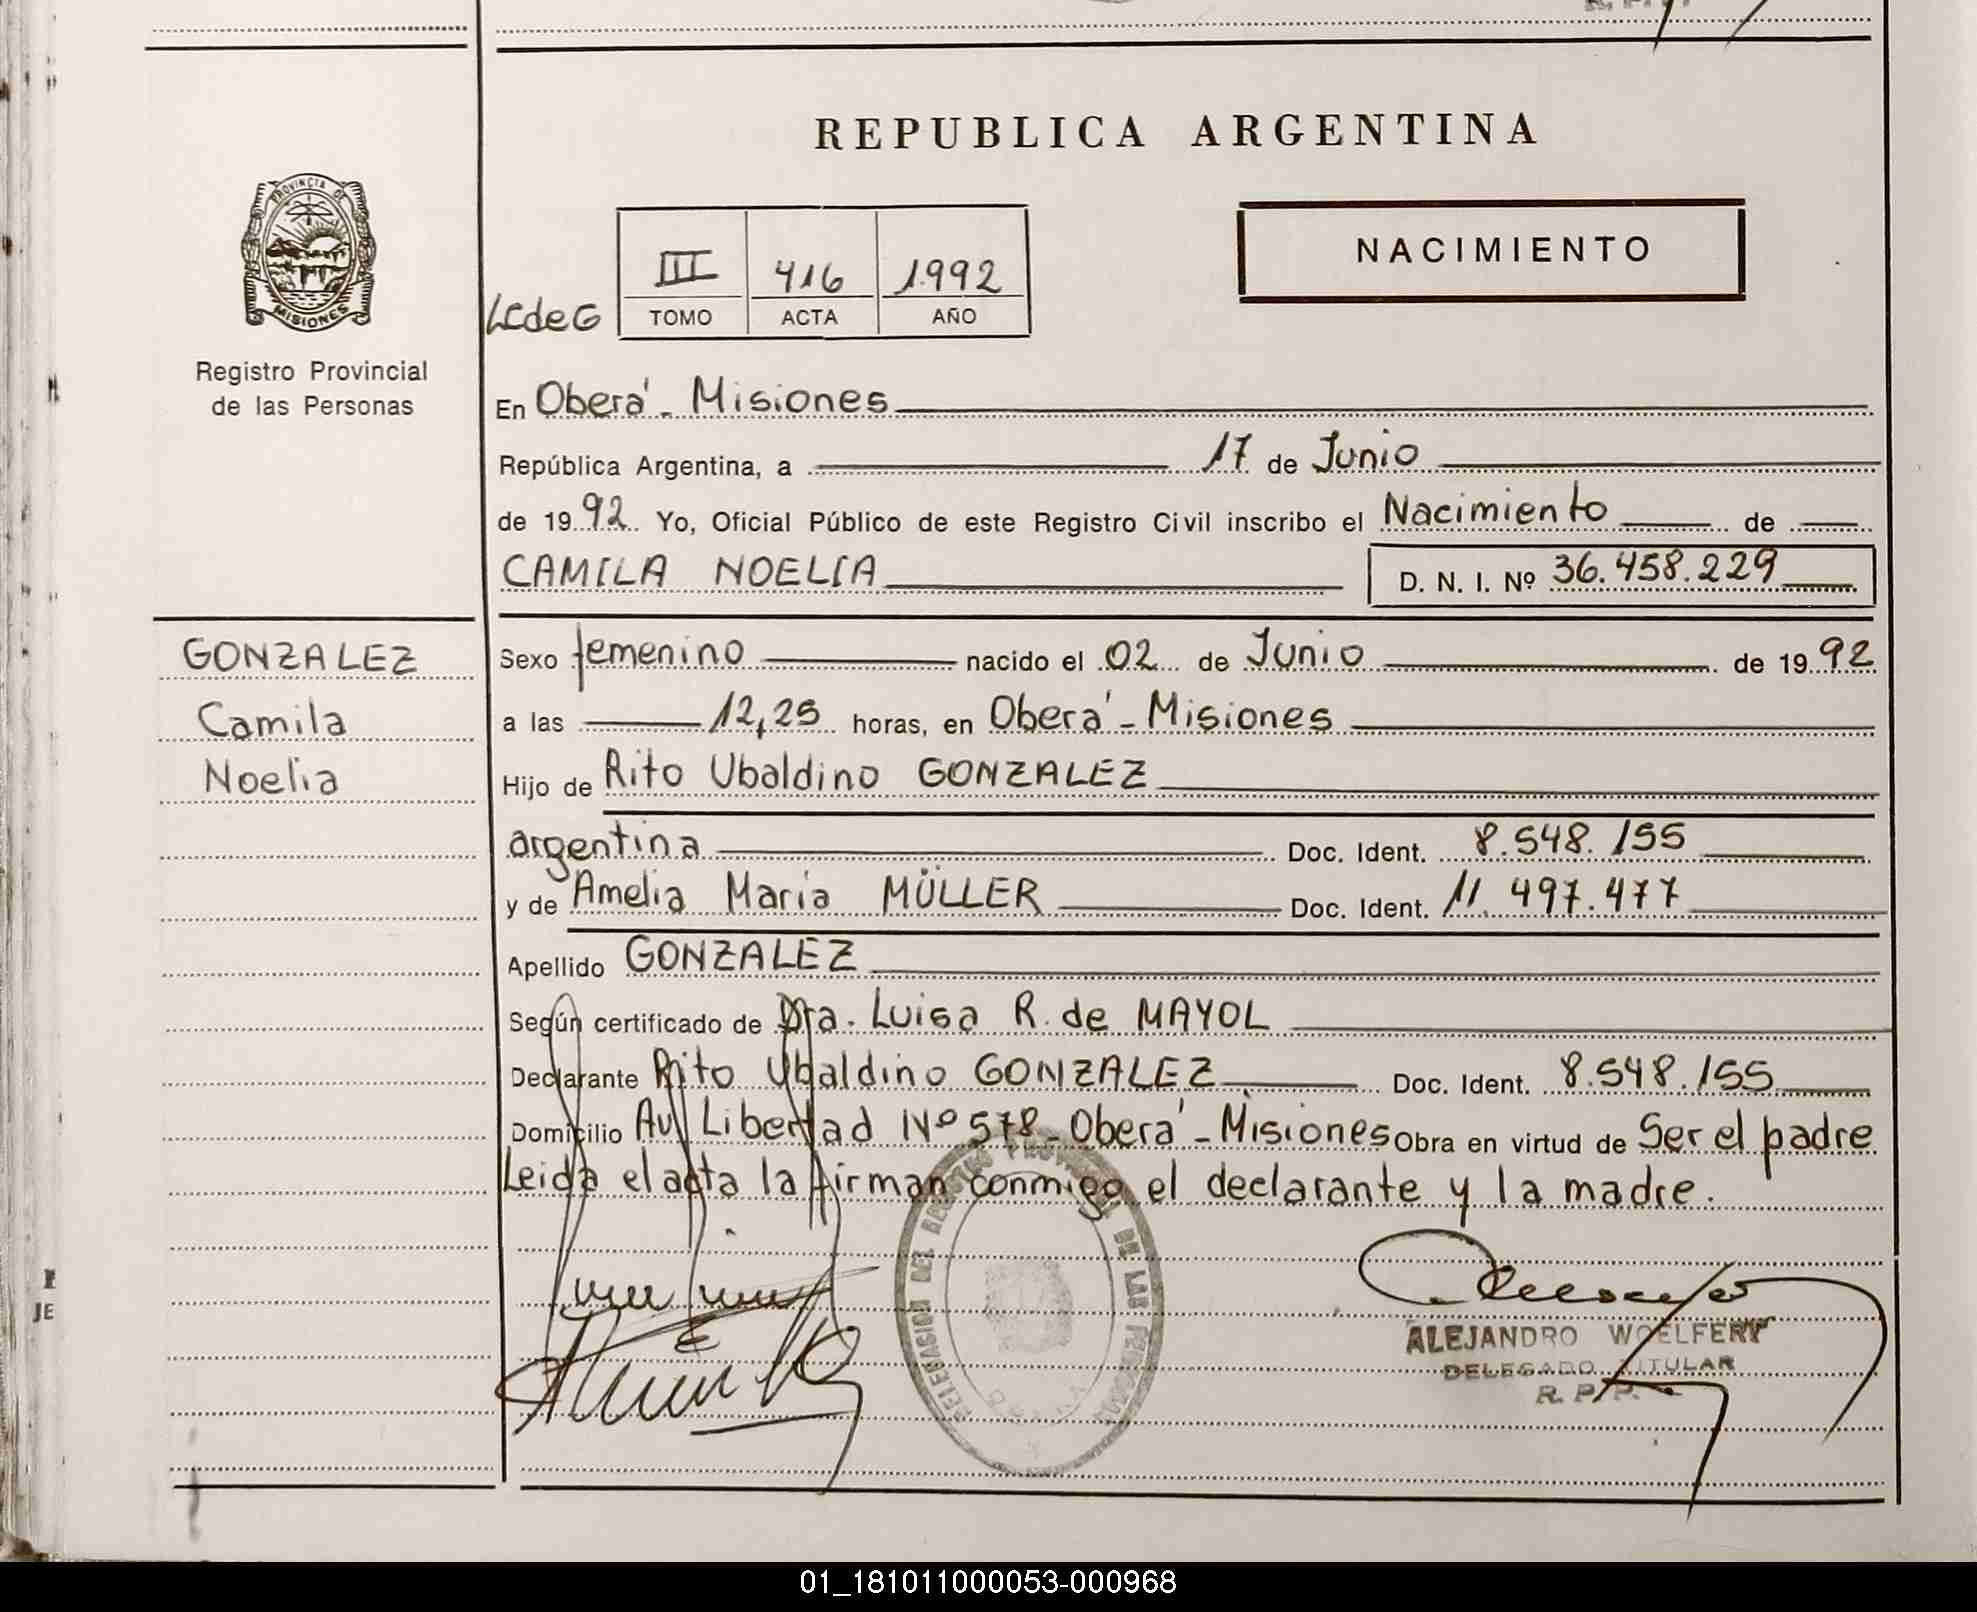 REPUBLICA ARGENTINA
PROVINCIA DE
MISIONES
Registro Provincial
de las Personas
NACIMIENTO
LCdeG
III 416 1.992
TOMO ACTA AÑO
En Oberá - Misiones
República Argentina, a 17 de Junio
de 1992 Yo, Oficial Público de este Registro Civil inscribo el Nacimiento de
CAMILA NOELIA D. N. I. Nº 36.458.229
GONZALEZ
Camila
Noelia
Sexo femenino nacido el 02 de Junio de 1992
a las 12,25 horas, en Oberá - Misiones
Hijo de Rito Ubaldino GONZALEZ
argentina Doc. Ident. 8.548.155
y de Amelia Maria MÜLLER Doc. Ident. 11.497.477
Apellido GONZALEZ
Según certificado de Dra. Luisa R. de MAYOL
Declarante Rito Ubaldino GONZALEZ Doc. Ident. 8.548.155
Domicilio Av. Libertad Nº 578 - Oberá - Misiones Obra en virtud de Ser el padre
Leida el acta la firman conmigo el declarante y la madre.
DELEGACION DEL REGISTRO PROVINCIAL DE LAS PERSONAS
ALEJANDRO WOELFERT
DELEGADO TITULAR
R. P. P.
JE
01_181011000053-000968